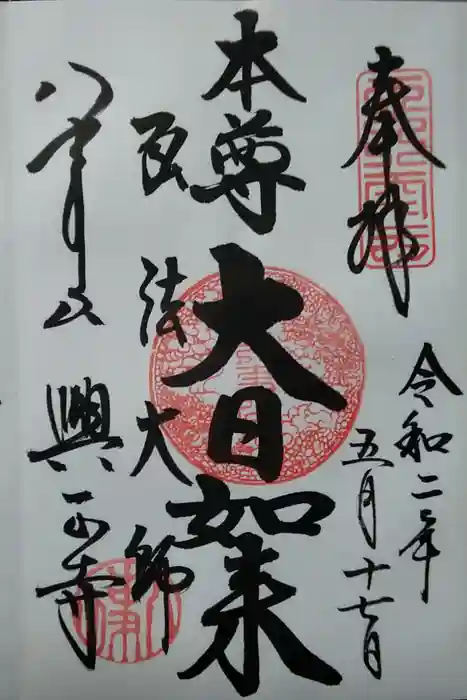 奉拝
令和二年
五月十七日
本尊 大日如来
弘法大師
八事山 興正寺